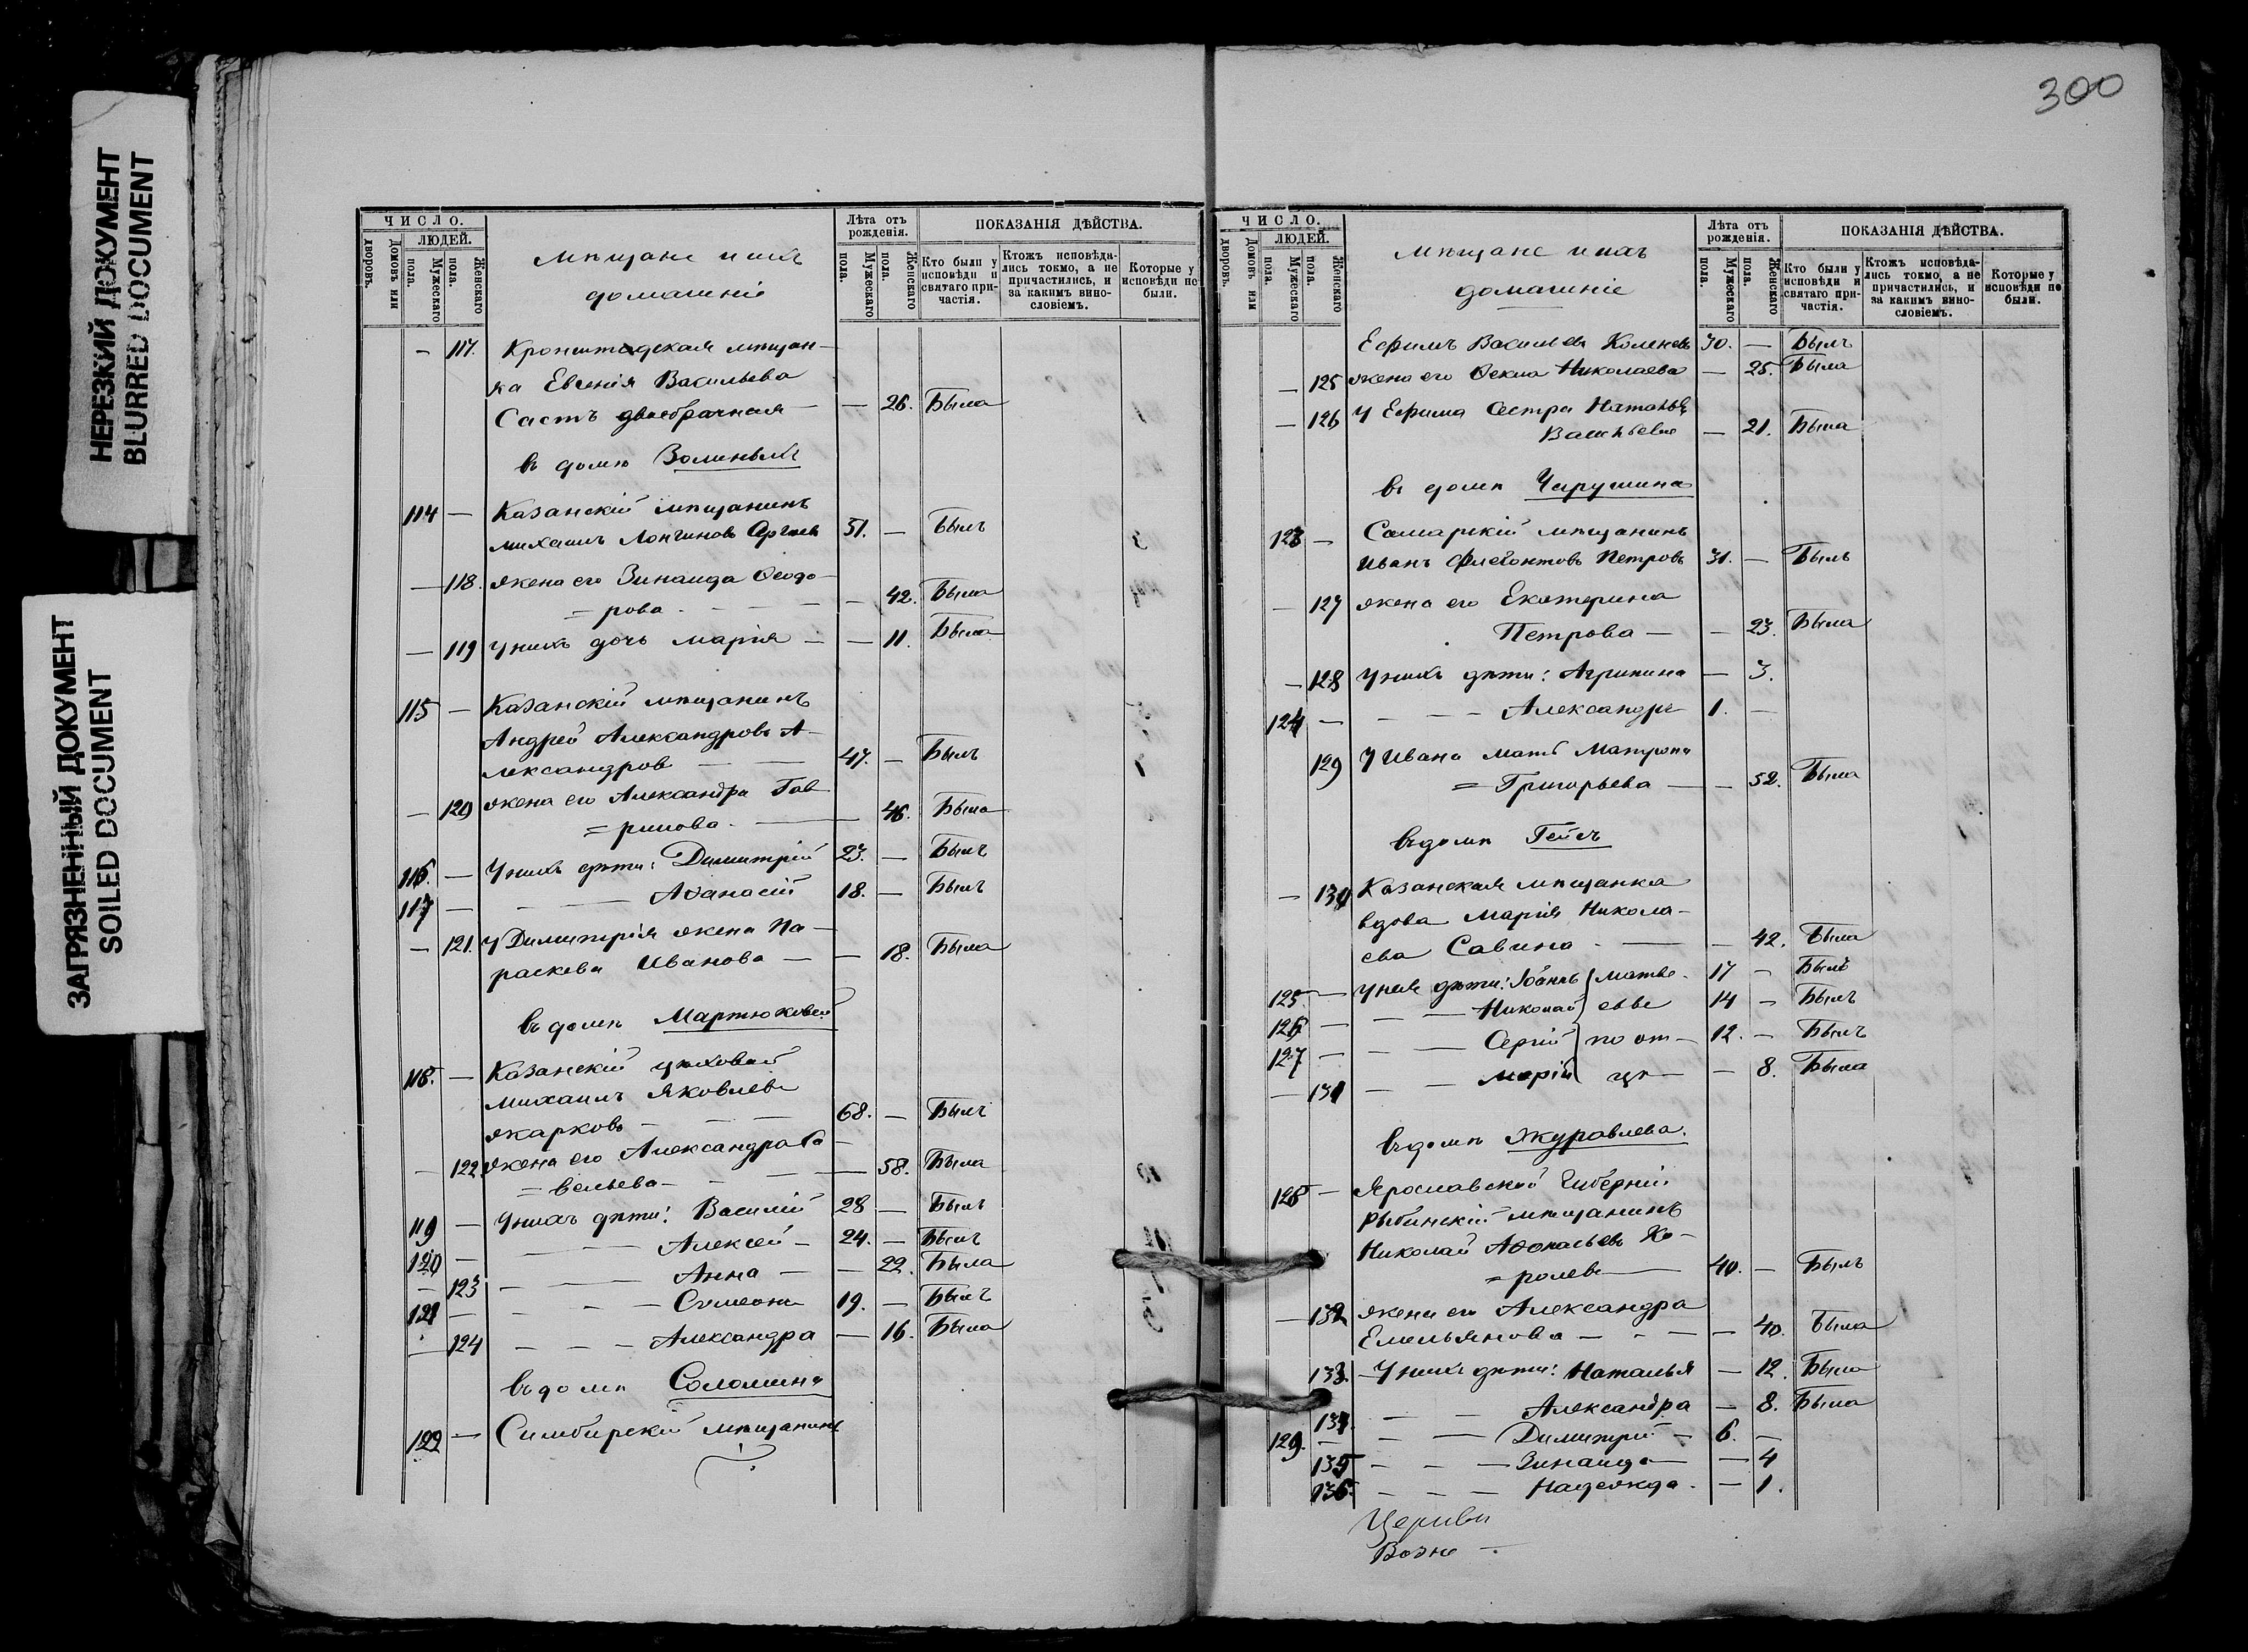 300
НЕРЕЗКИЙ ДОКУМЕНТ
BLURRED DOCUMENT
ЗАГРЯЗНЕННЫЙ ДОКУМЕНТ
SOILED DOCUMENT
ЧИСЛО.
ЛЮДЕЙ.
Домовъ или дворовъ.
Мужескаго пола.
Женскаго пола.
Мѣщане и ихъ
домашніе
Лѣта отъ рожденія.
Мужескаго пола.
Женскаго пола.
ПОКАЗАНІЯ ДѢЙСТВА.
Кто были у исповѣди и святаго при-частія.
Ктожъ исповѣда-лись токмо, а не причастились, и за какимъ вино-словіемъ.
Которые у исповѣди не были.
— 117. Кронштадская мѣщан-
ка Евгенія Васильева
Састъ двоебрачная — — 26. Была
въ домѣ
114 — Казанскій мѣщанинъ
Михаилъ Лонгиновъ Сергѣевъ 51. — Былъ
— 118. жена его Зинаида Ѳеодо-
=рова — 42. Была
— 119 У нихъ дочь Марія — — 11. Была
115 — Казанскій мѣщанинъ
Андрей Александровъ А-
лександровъ 47. — Былъ
— 120 жена его Александра Гав-
=рилова — 46. Была
116. — У нихъ дѣти: Димитрій 23. — Былъ
117 — Аѳанасій 18. — Былъ
— 121. У Димитрія жена Па-
раскева Иванова — — 18. Была
въ домѣ Мартюковой
118. — Казанскій цеховой
Михаилъ Яковлевъ
Жарковъ 68. — Былъ
— 122 жена его Александра Са-
=вельева — 58. Была
119 — У нихъ дѣти: Василій 28 — Былъ
120 — Алексѣй — 24. — Былъ
— 123 Анна — — 22. Была
121 — Сѵмеонъ 19. — Былъ
— 124 Александра — 16. Была
въ домѣ Соломина
122 — Симбирскій мѣщанинъ
ЧИСЛО.
ЛЮДЕЙ.
Домовъ или дворовъ.
Мужескаго пола.
Женскаго пола.
Мѣщане и ихъ
домашніе
Лѣта отъ рожденія.
Мужескаго пола.
Женскаго пола.
ПОКАЗАНІЯ ДѢЙСТВА.
Кто были у исповѣди и святаго при-частія.
Ктожъ исповѣда-лись токмо, а не причастились, и за какимъ вино-словіемъ.
Которые у исповѣди не были.
Ефимъ Васильевъ 30. — Былъ
— 125 жена его Ѳекла Николаева — 25. Была
— 126 У Ефима сестра Наталья
Васильева — 21. Была
въ домѣ Чарушина
123 — Самарскій мѣщанинъ
Иванъ Флегонтовъ Петровъ 31. — Былъ
— 127 жена его Екатерина
Петрова — — 23. Была
— 128 У нихъ дѣти: Агрипина — 3.
124 — — — — Александръ 1. —
129 У Ивана мать Матрона
= Григорьева — — 52. Была
въ домѣ Гейсъ
— 130 Казанская мѣщанка
вдова Марія Никола-
ева Савина — 42. Была
125 — У нея дѣти: Іоаннъ Матве- 17 — Былъ
126 — — — Николай евы 14 — Былъ
127 — — — Сергій по от- 12. — Былъ
— 131 — — Марія цу — — 8. Была
въ домѣ Журавлева.
128 — Ярославской Губерніи
Рыбинскій мѣщанинъ
Николай Аѳанасьевъ Ко-
=ролевъ 40. — Былъ
— 132 жена его Александра
Емельянова — — — — 40. Была
133. — У нихъ дѣти: Наталья — 12. Была
134. — — Александра — 8. Была
129. — — — Димитрій — 6. —
135 — — — Зинаида — — 4
136. — — — Надежда. — 1.
Церкви
Возне —